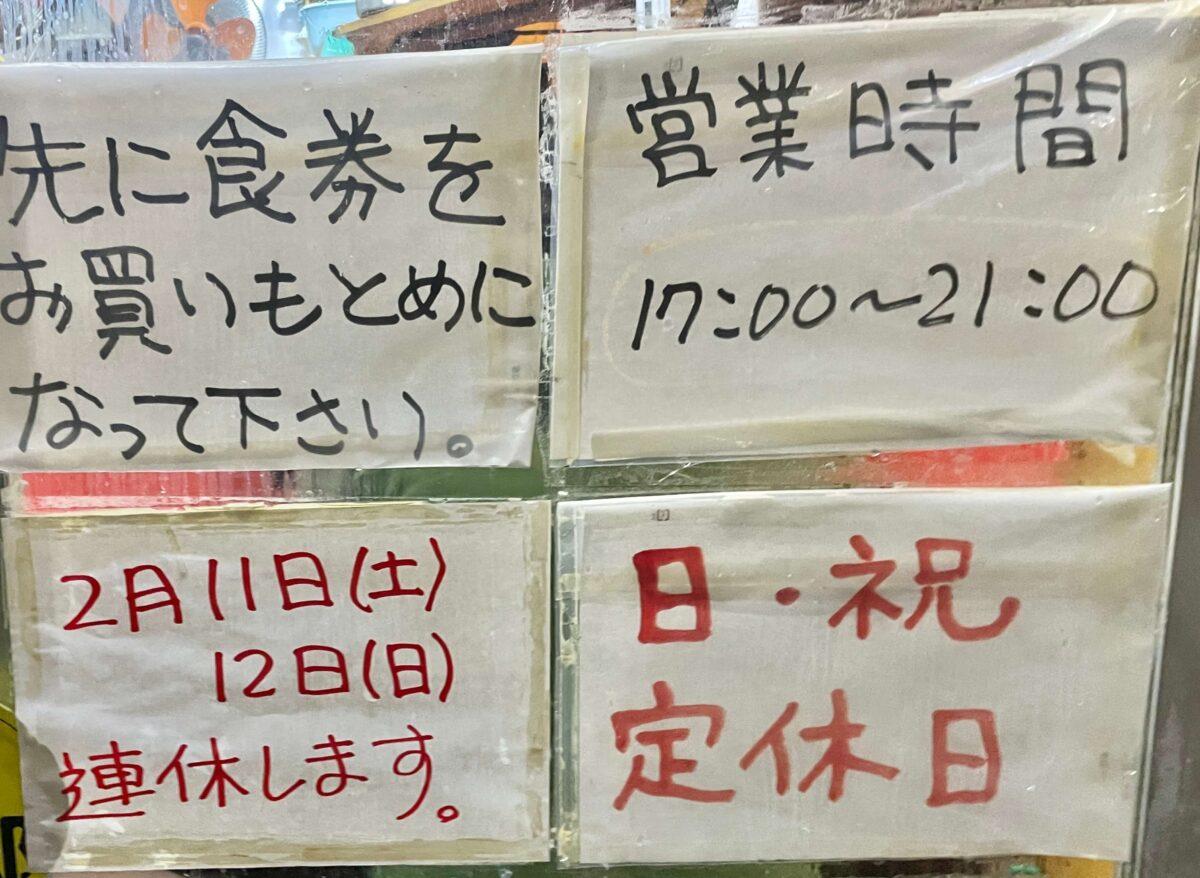 先に食券を
お買いもとめに
なって下さい。
営業時間
17:00～21:00
2月11日(土)
12日(日)
連休します。
日・祝
定休日